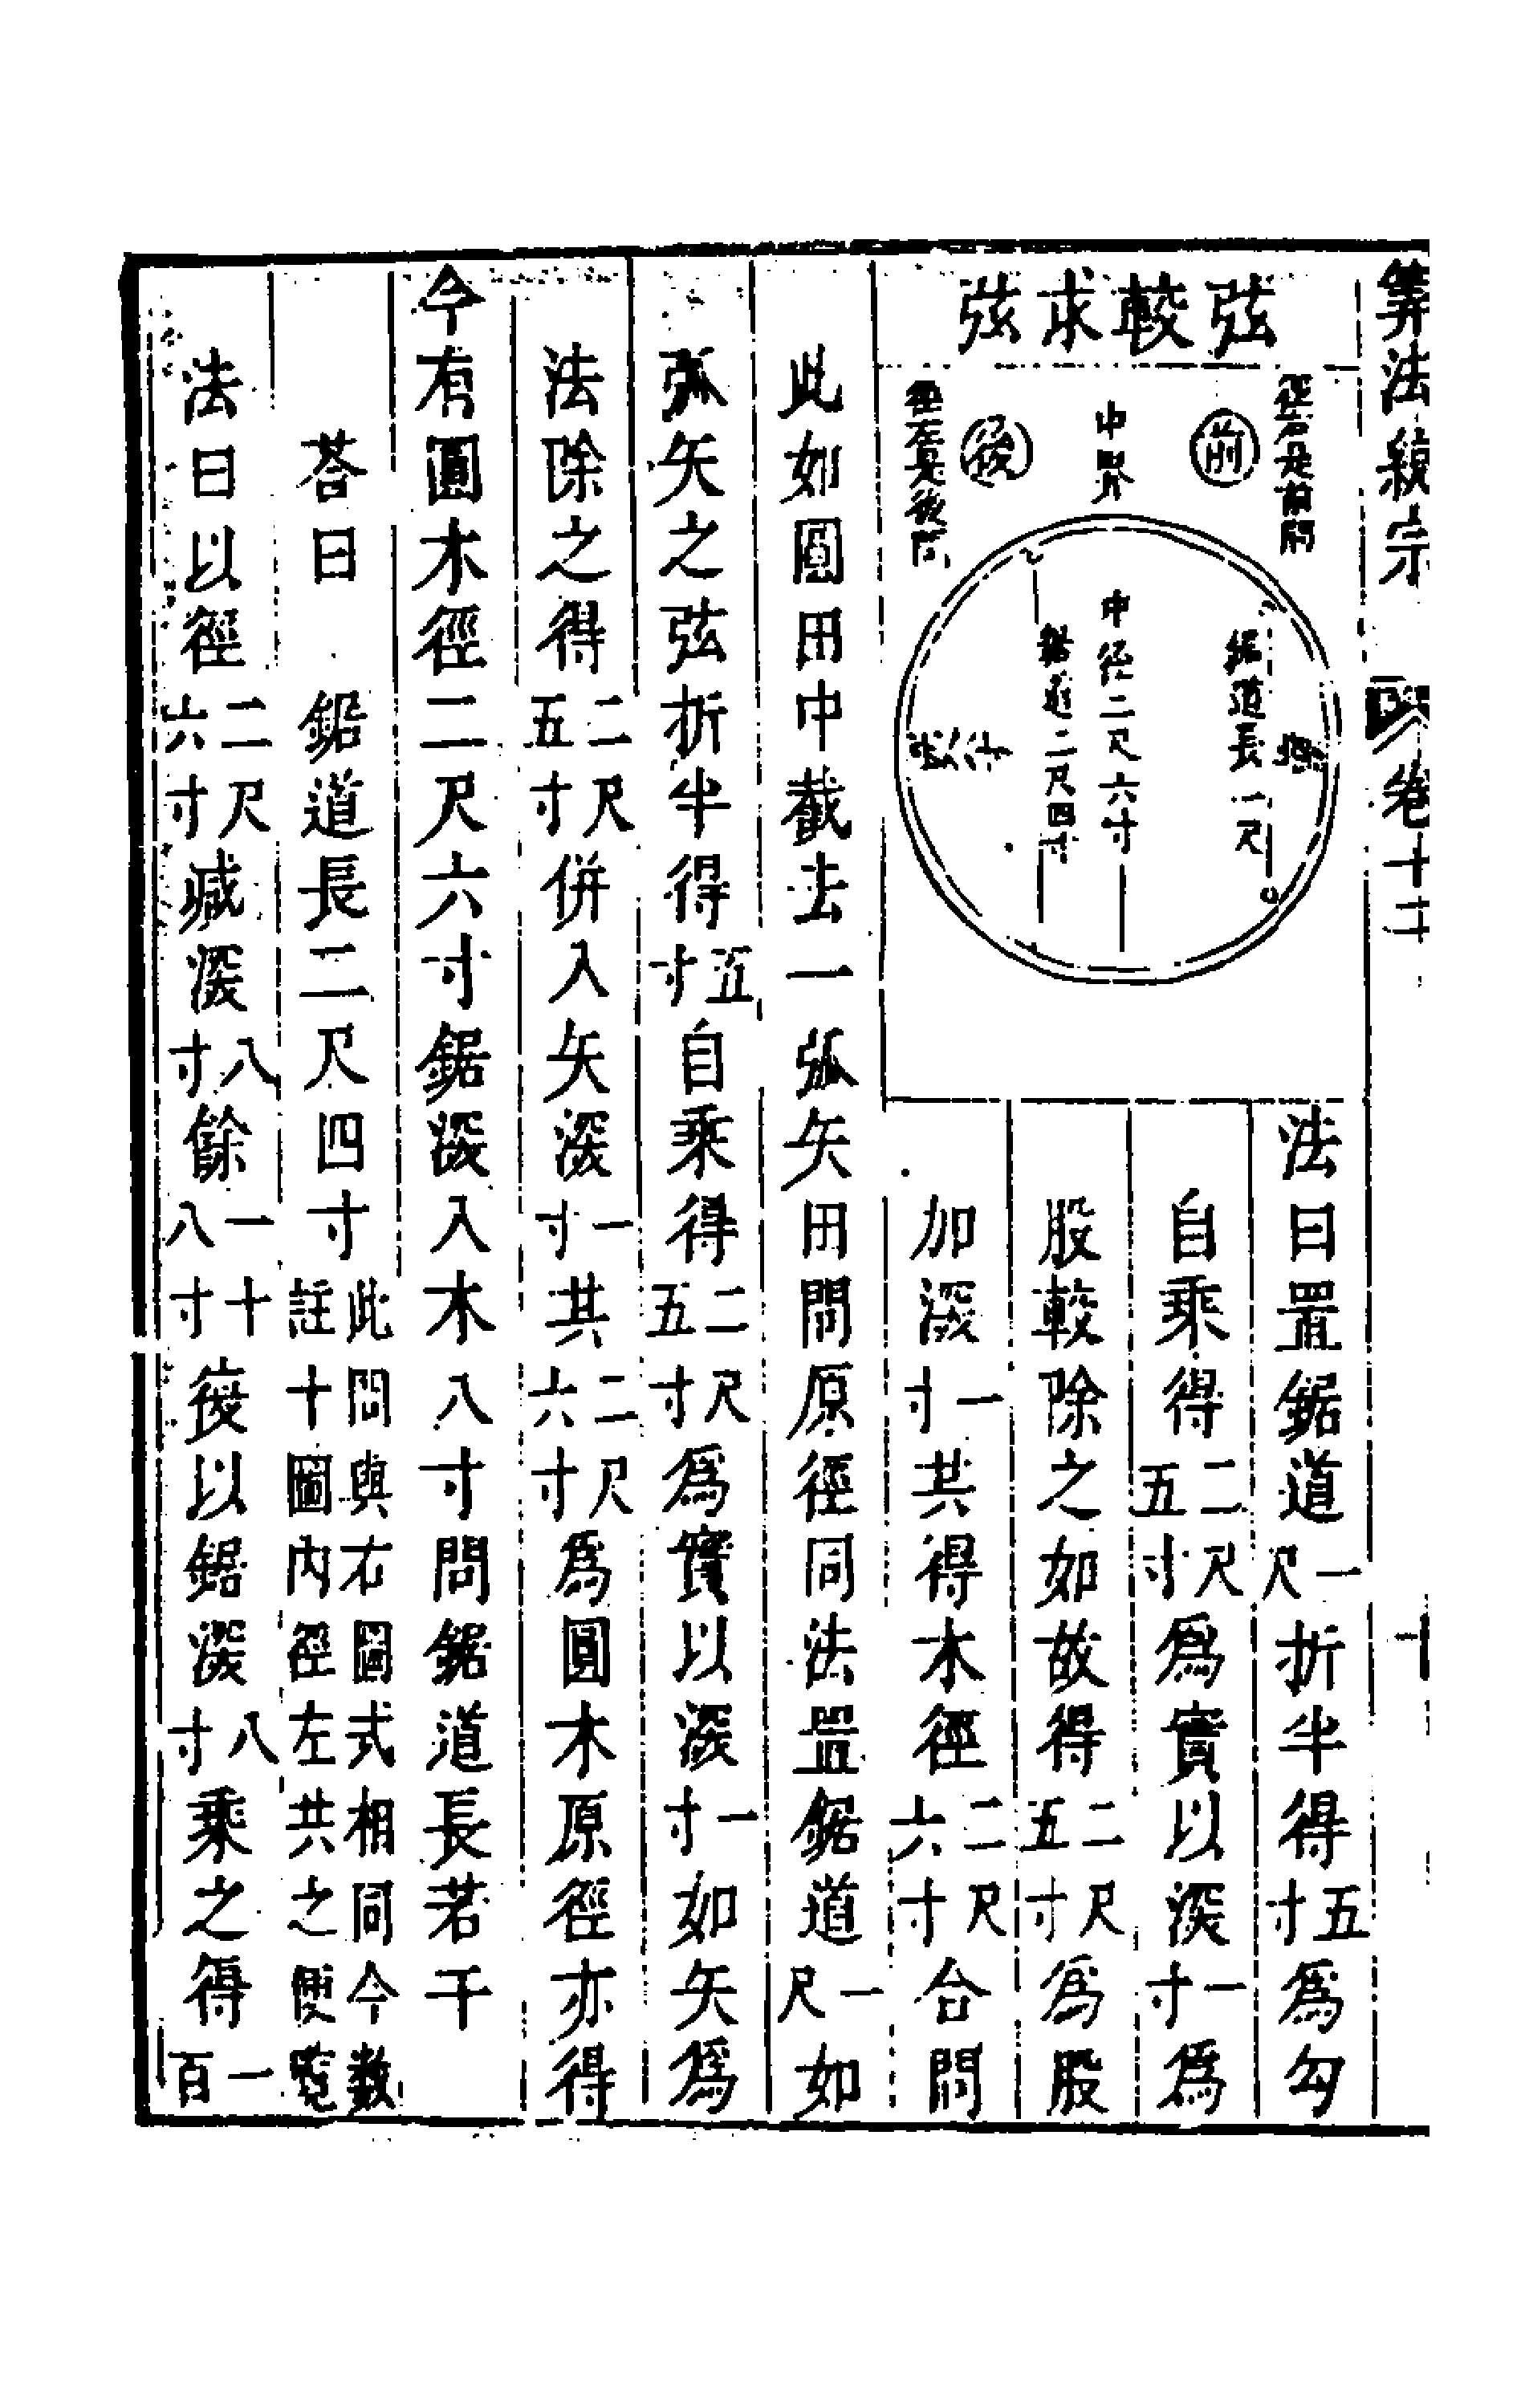 算法統宗 卷十二 十
弦較求弦
徑右是前問
前
中界
後
徑左是後問
鋸道長一尺
中徑二尺六寸
鋸道二尺四寸
法曰置鋸道一尺折半得五寸為勾
自乘得二尺五寸為實以深一寸為
股較除之如故得二尺五寸為股
加深一寸共得木徑二尺六寸合問
此如圓田中截去一弧矢田問原徑同法置鋸道一尺如
弧矢之弦折半得五寸自乘得二尺五寸為實以深一寸如矢為
法除之得二尺五寸併入矢深一寸共二尺六寸為圓木原徑亦得
今有圓木徑二尺六寸鋸深入木八寸問鋸道長若干
荅曰 鋸道長二尺四寸此問與右圖式相同今数註十圖內徑左共之便覧
法曰以徑二尺六寸減深八寸餘一十八寸後以鋸深八寸乘之得一百